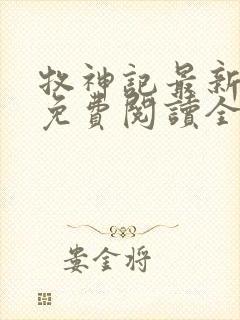 牧神記最新
免費閱讀全
娄金将